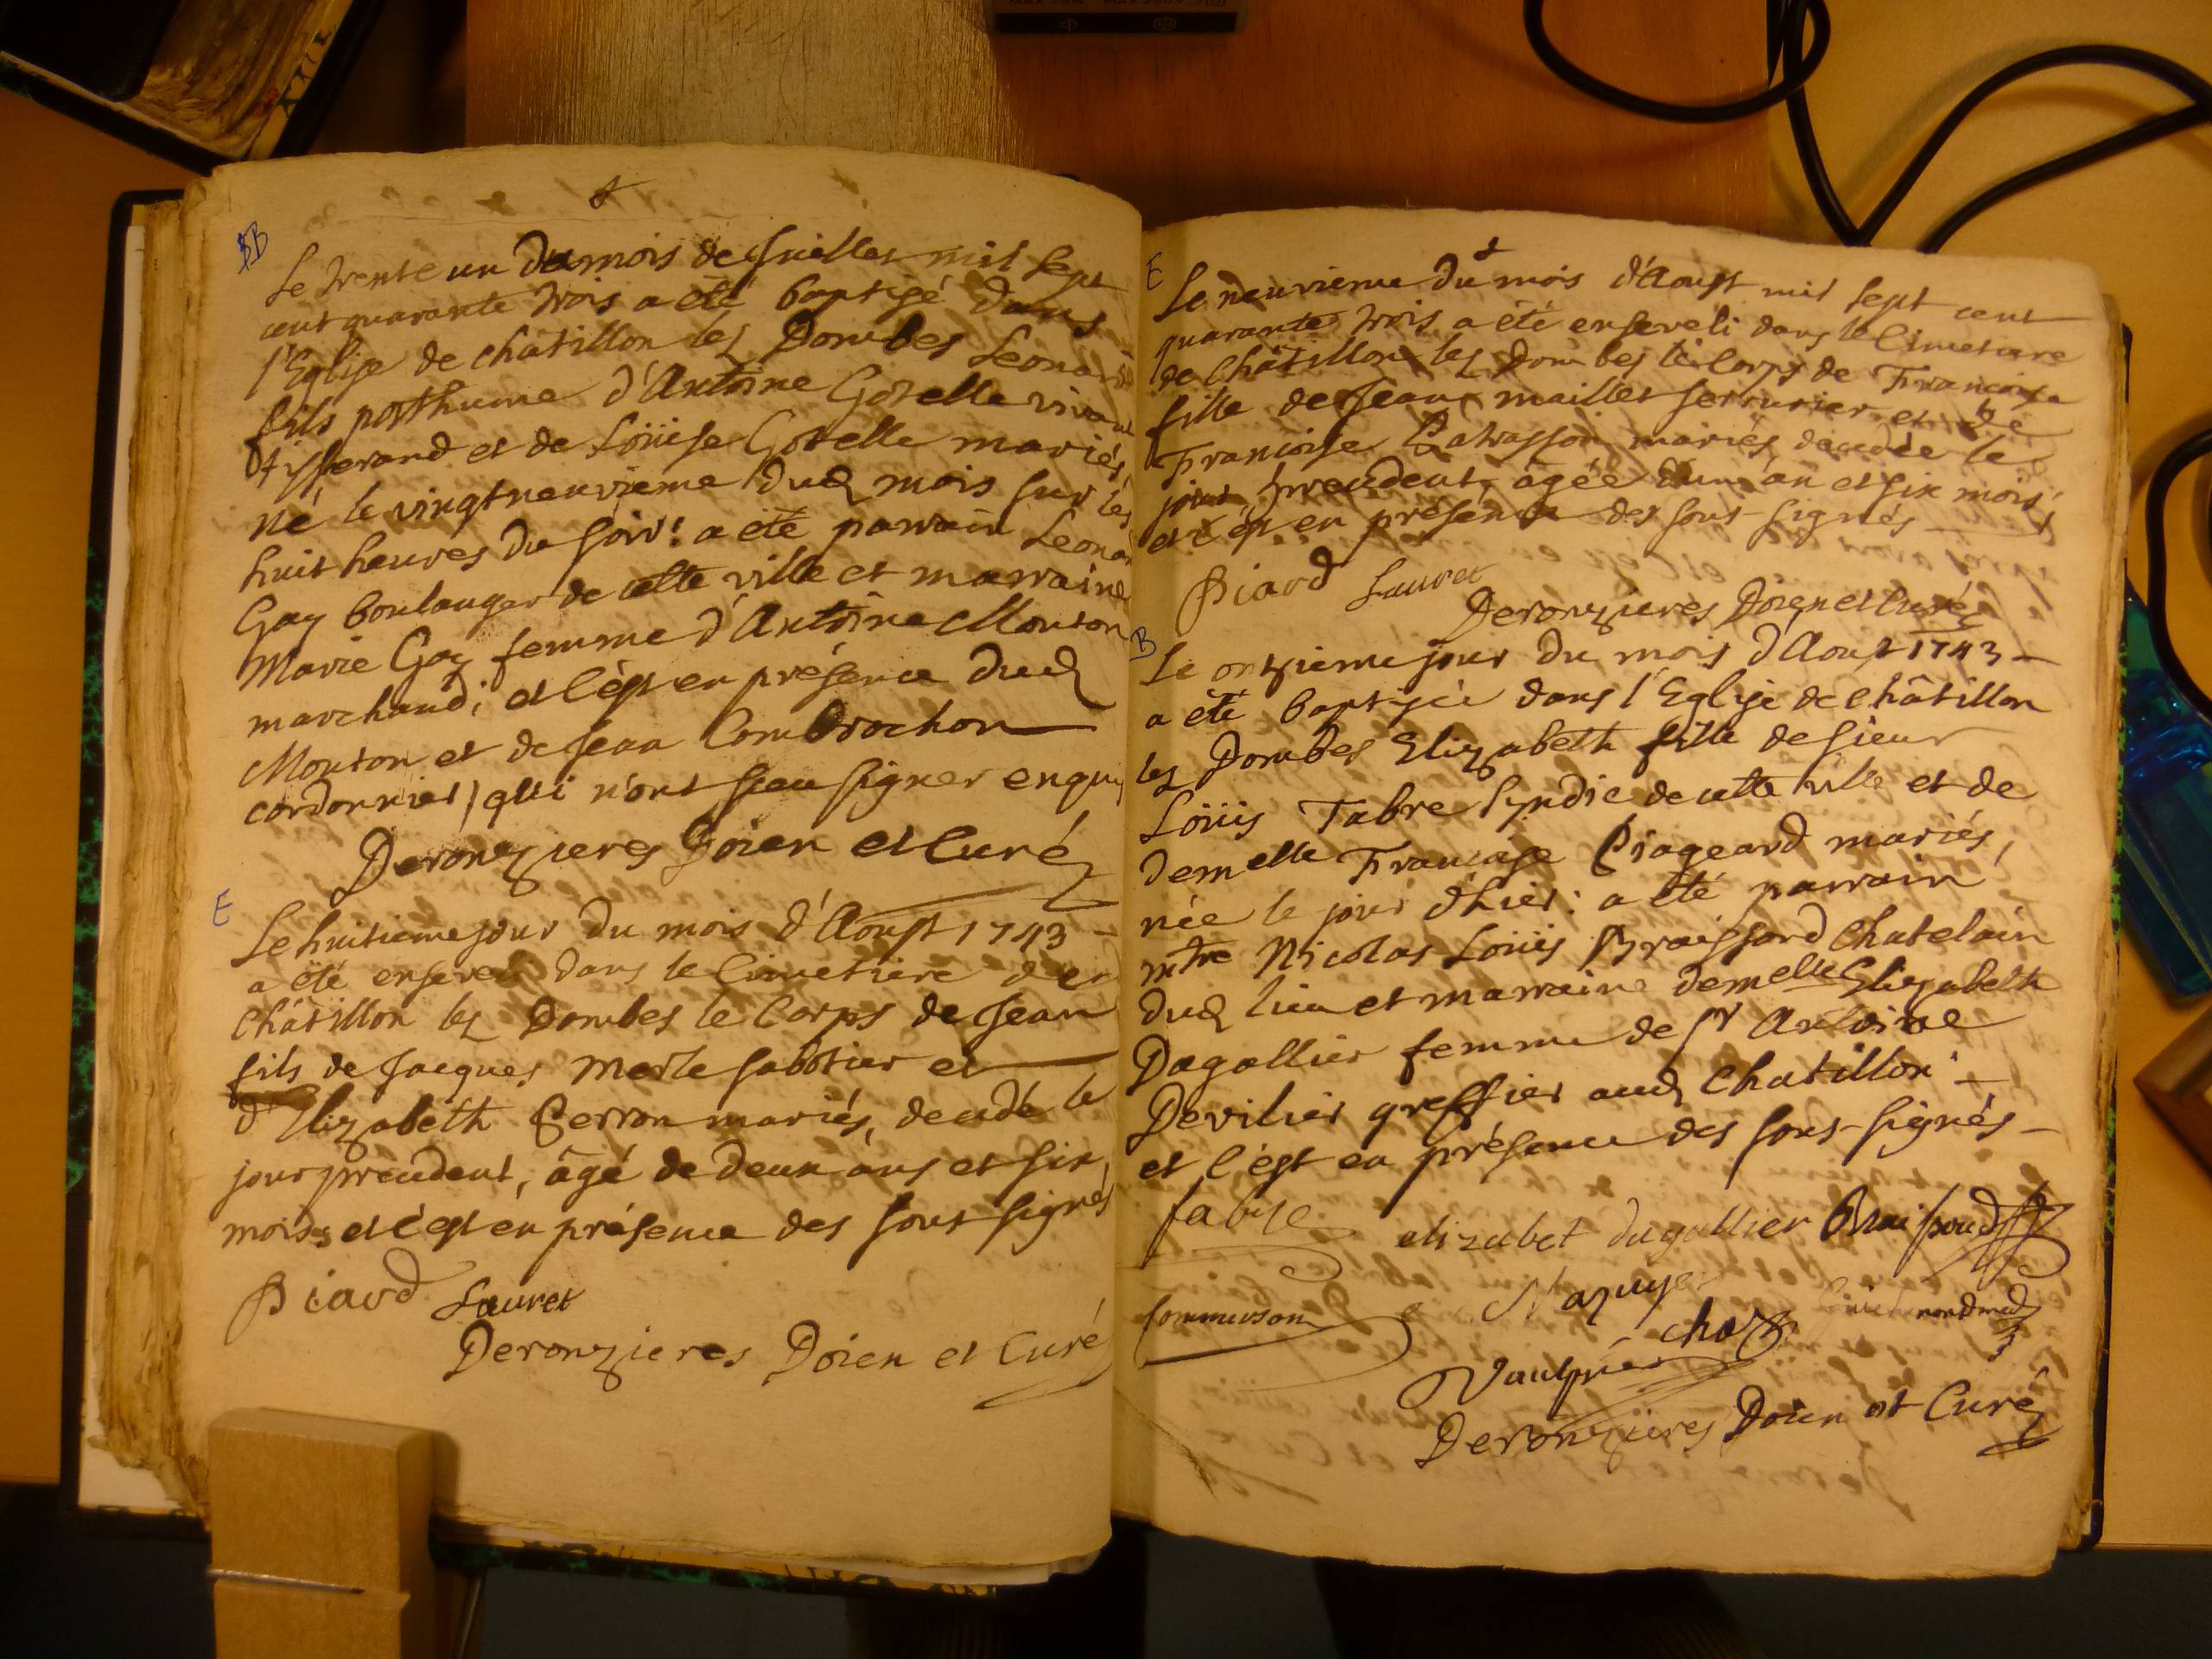 B
Le trente un du mois de Juillet mil sept
cent quarante trois a eté baptisé dans
l'Eglise de châtillon les Dombes Leonard
fils posthume d'Antoine Gotelle vivant
tisserand et de Loüise Gotelle mariés,
né le vingtneuvieme dud mois sur les
huit heures du soir: a eté parrain Leonard
Gay boulanger de cette ville et marraine
Marie Gay femme d'Antoine Monton
marchand; et c'est en présence dud
Monton et de Jean Combrochon
cordonnier qui n'ont sceu signer enquis
Deronzieres Doien et Curé
E
Le huitieme jour du mois d'Aoust 1743 -
a été enseveli dans le Cimetiere de
Châtillon les Dombes le Corps de Jean
fils de Jacques Merle sabotier et
d'Elizabeth Perron mariés, decedé le
jour precedent, âgé de deux ans et six
mois; et c'est en présence des sous signés
Piard Lauret
Deronzieres Doien et Curé
E
Le neuvieme du mois d'Aoust mil sept cent
quarante trois a été enseveli dans le Cimetiere
de Châtillon les Dombes le Corps de Francoise
fille de Jean maillet serrurier et de
Francoise mariés, decedée le
jour precedent, âgée d'un an et six mois,
et c'est en présence des sous-signés
Piard Lauret
Deronzieres Doien et Curé
B
Le onzieme jour du mois d'Aoust 1743 -
a eté baptisée dans l'Eglise de châtillon
les Dombes Elizabeth fille de sieur
Loüis Fabre syndic de cette ville et de
demelle Francoise Piageard mariés,
née le jour d'hier: a eté parrain
mtre Nicolas Loüis Braissard Chatelain
dud lieu et marraine demelle Elizabeth
Dagallier femme de sr Antoine
Devilier greffier aud Chatillon -
et c'est en présence des sous-signés -
fabre elizabet dagallier Braissoud
Commerson Mazuyer
Vaulpré
Deronzieres Doien et Curé